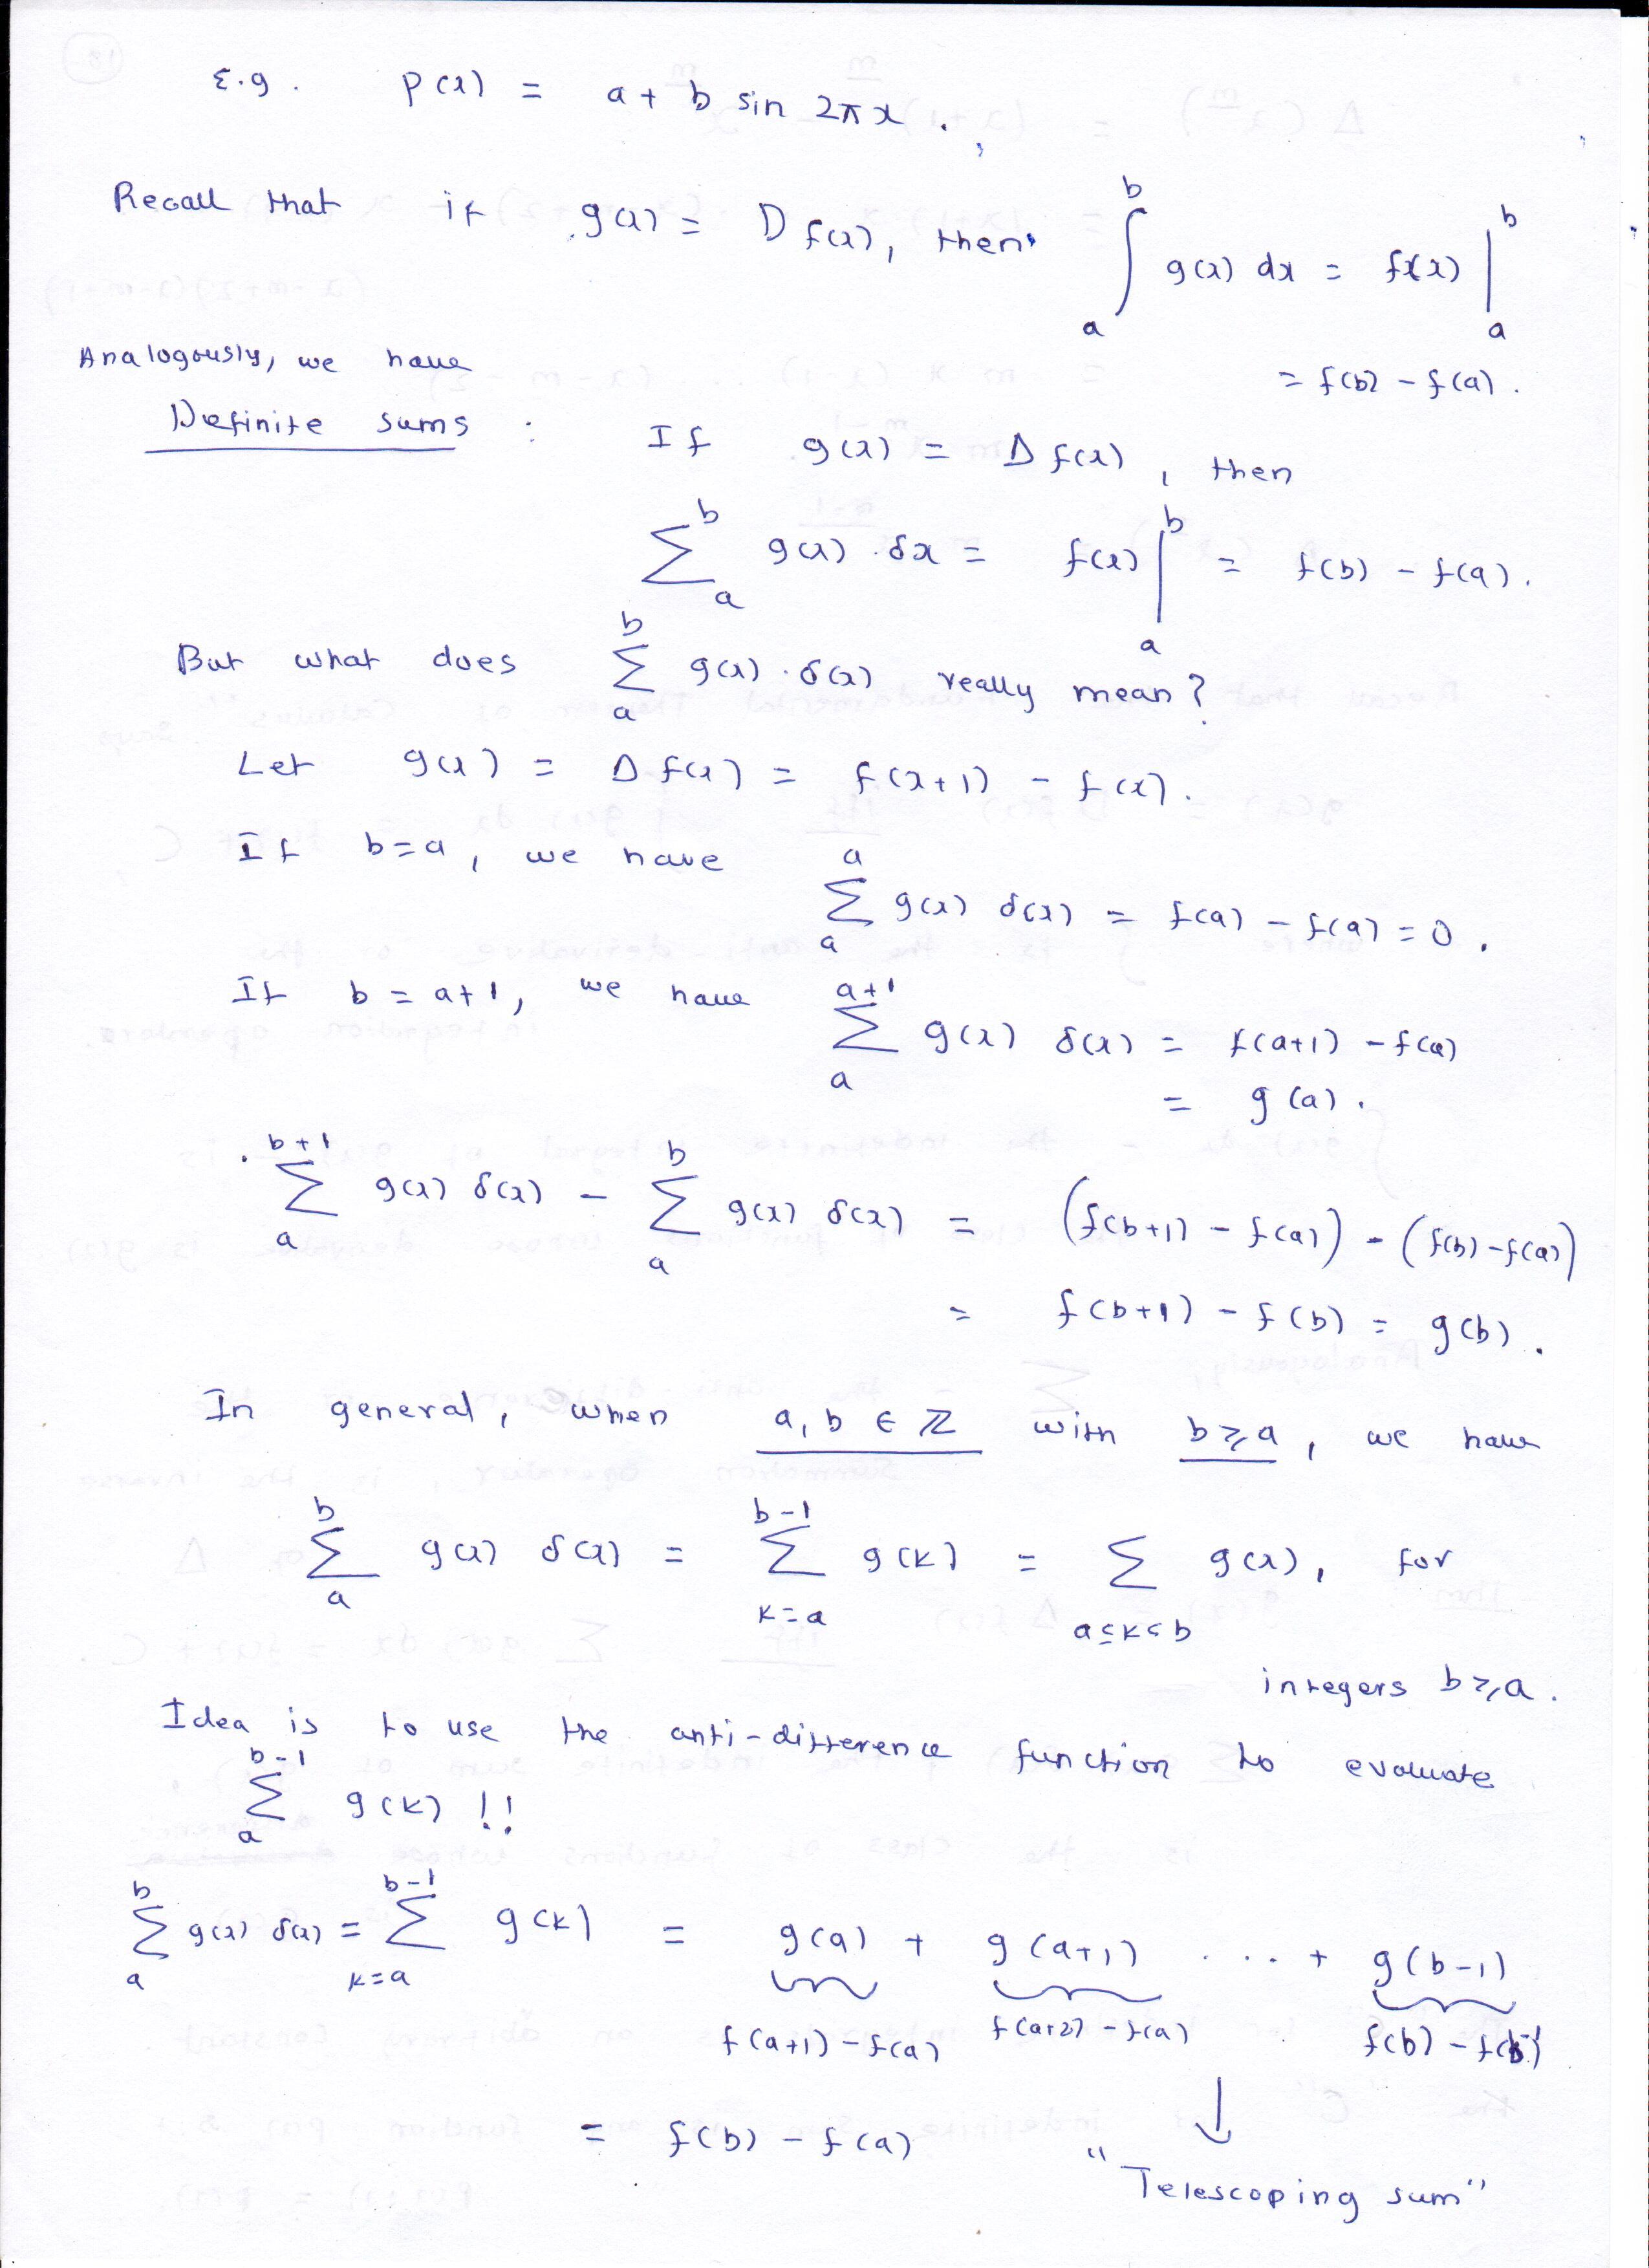 E.g. p(x) = a + b sin 2πx.
Recall that if g(x) = D f(x), then ∫_a^b g(x) dx = f(x) |_a^b
= f(b) - f(a).
Analogously, we have
Definite sums : If g(x) = Δ f(x), then
∑_a^b g(x) · δx = f(x) |_a^b = f(b) - f(a).
But what does ∑_a^b g(x) · δ(x) really mean?
Let g(x) = Δ f(x) = f(x+1) - f(x).
If b = a, we have ∑_a^a g(x) δ(x) = f(a) - f(a) = 0.
If b = a+1, we have ∑_a^{a+1} g(x) δ(x) = f(a+1) - f(a)
= g(a).
∑_a^{b+1} g(x) δ(x) - ∑_a^b g(x) δ(x) = (f(b+1) - f(a)) - (f(b) - f(a))
= f(b+1) - f(b) = g(b).
In general, when a, b ∈ ℤ with b ≥ a, we have
∑_a^b g(x) δ(x) = ∑_{k=a}^{b-1} g(k) = ∑_{a≤k<b} g(x), for
integers b ≥ a.
Idea is to use the anti-difference function to evaluate
∑_a^{b-1} g(k) !!
∑_a^b g(x) δ(x) = ∑_{k=a}^{b-1} g(k) = g(a) + g(a+1) .... + g(b-1)
f(a+1) - f(a) f(a+2) - f(a) f(b) - f(b-1)
↓
= f(b) - f(a) "Telescoping sum"